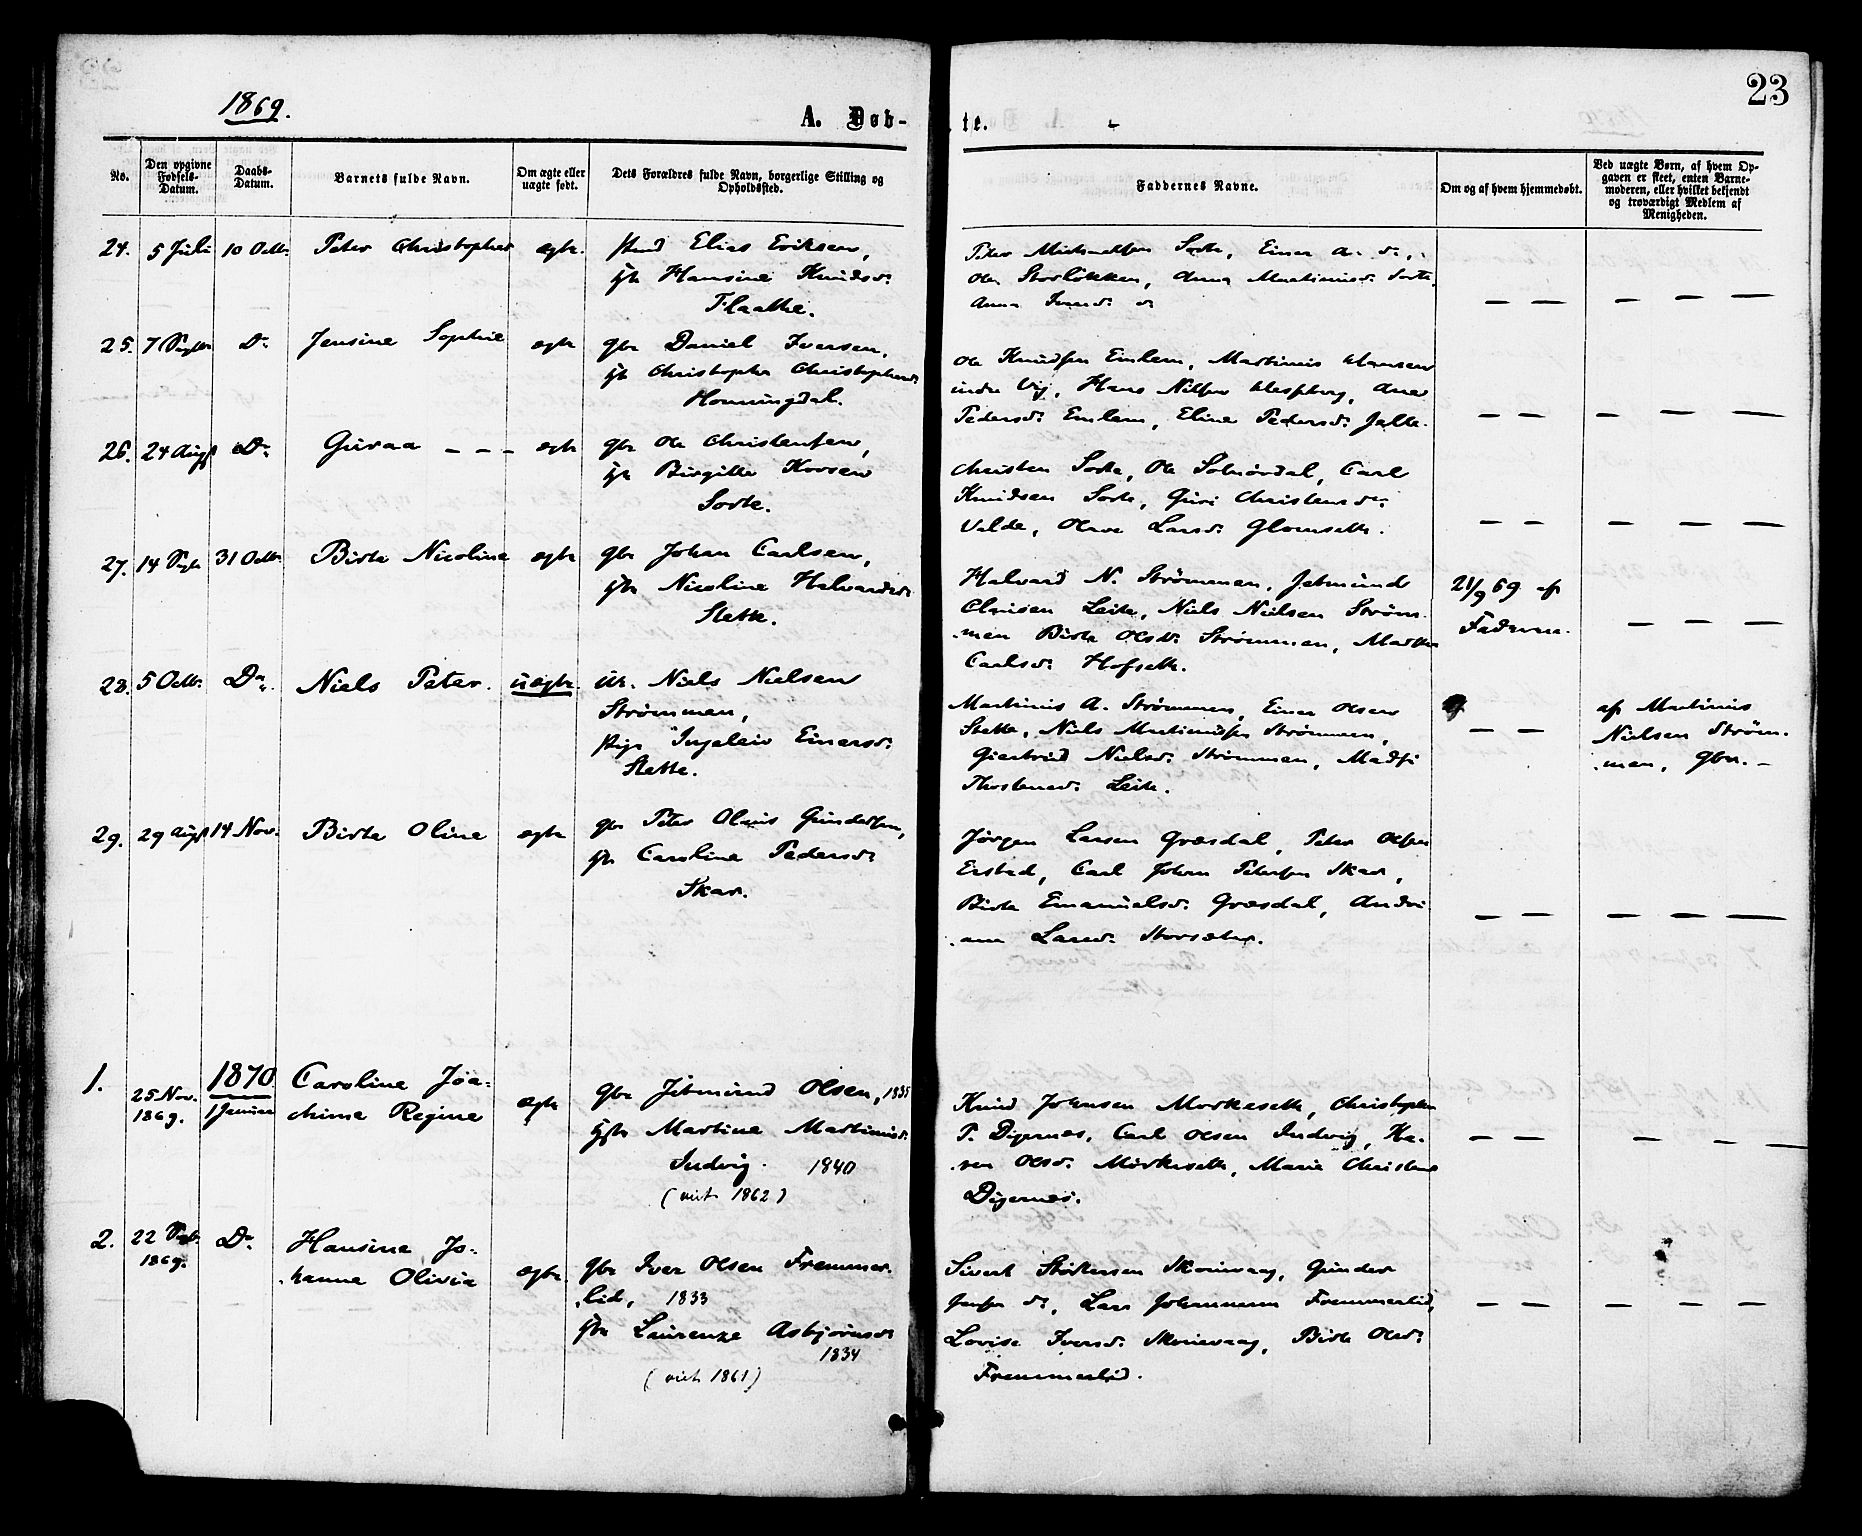 23
1869.
A. Døb-
te.
No.
Den opgivne Fødsels-Datum.
Daabs-Datum.
Barnets fulde Navn.
Om ægte eller uægte født.
Dets Forældres fulde Navn, borgerlige Stilling og Opholdssted.
Faddernes Navne.
Om og af hvem hjemmedøbt.
Ved uægte Børn, af hvem Opgaven er skeet, enten Barnemoderen, eller hvilket bekjendt og troværdigt Medlem af Menigheden.
24. 5 Juli 10 Octb. Peter Christopher ægte.
Elias Eriksen,
Hansine Knudsd:
Flaathe.
Peter Michaelsen Sorte, Einer
Ole Storløkken, Anna Martinusd: Sorte,
Anna
25. 7 Septbr D: Jensine Sophie ægte
gbr Daniel Iversen,
Christophersd:
Honningdal.
Ole Knudsen Emlem, Martinus Hansen
indre Vig, Hans Nilsen
Pedersd: Emlem, Eline Pedersd:
26. 24 Augst D: Guraa - - - ægte
gbr Ole Christensen,
Birgitte
Sorte.
Christen Sorte, Ole Solnørdal, Carl
Knudsen Sorte, Guri Christensd:
Valde, Olave Larsd: Glomsette.
27. 14 Septr 31 Octb: Birte Nicoline ægte
gbr Johan Carlsen,
Nicoline Halvardsd:
Slette.
Halvard N. Strømmen, Jetmund
Clausen Leite, Niels Nielsen Strøm-
men Birte Olsd: Strømmen, Marthe
Carlsd: Hofseth.
21/9 69 af
Faderen.
28. 5 Octb: D: Niels Peter. uægte.
Niels Nielsen
Strømmen,
Pige Ingeleiv Einarsd:
Slette.
Martinus A. Strømmen, Einer Olsen
Slette, Niels Martinussen Strømmen,
Giertrud Nielsd: Strømmen,
Thostensd: Leite.
af Martinus
Nielsen Strøm-
men, Gbr.
29. 29 Augst 14 Nov. Birte Oline ægte
gbr Peter Olaus Gundersen,
Caroline Pedersd:
Skar.
Jørgen Larsen Græsdal, Peter Olsen
Erstad, Carl Johan Petersen Skar,
Birte Emanuelsd: Græsdal, Andri-
ane Larsd: Storsæter.
1. 25 Nov. 1869. 1870 1 Januar
Caroline Joa-
chime Regine ægte
gbr Jetmund Olsen, 1835
Martine Martinusd:
Indvig. 1840
(viet 1862)
Knud Johnsen Morkeseth, Christopher
P. Digernes, Carl Olsen Indvig, Ka-
ren Olsd: Morkeseth, Marie Christens
Digernes.
2. 22 Septb. 1869. D:
Hansine Jo-
hanne Olivia ægte.
gbr Iver Olsen Fremmer-
lid, 1833
Laurenze Asbjørnsd:
1834
(viet 1861)
Sivert Skorevaag, Gunder
Jensen d:, Lars Johannesen Fremmerlid,
Lovise Iversd: Skorevaag, Birte Olsd:
Fremmerlid.